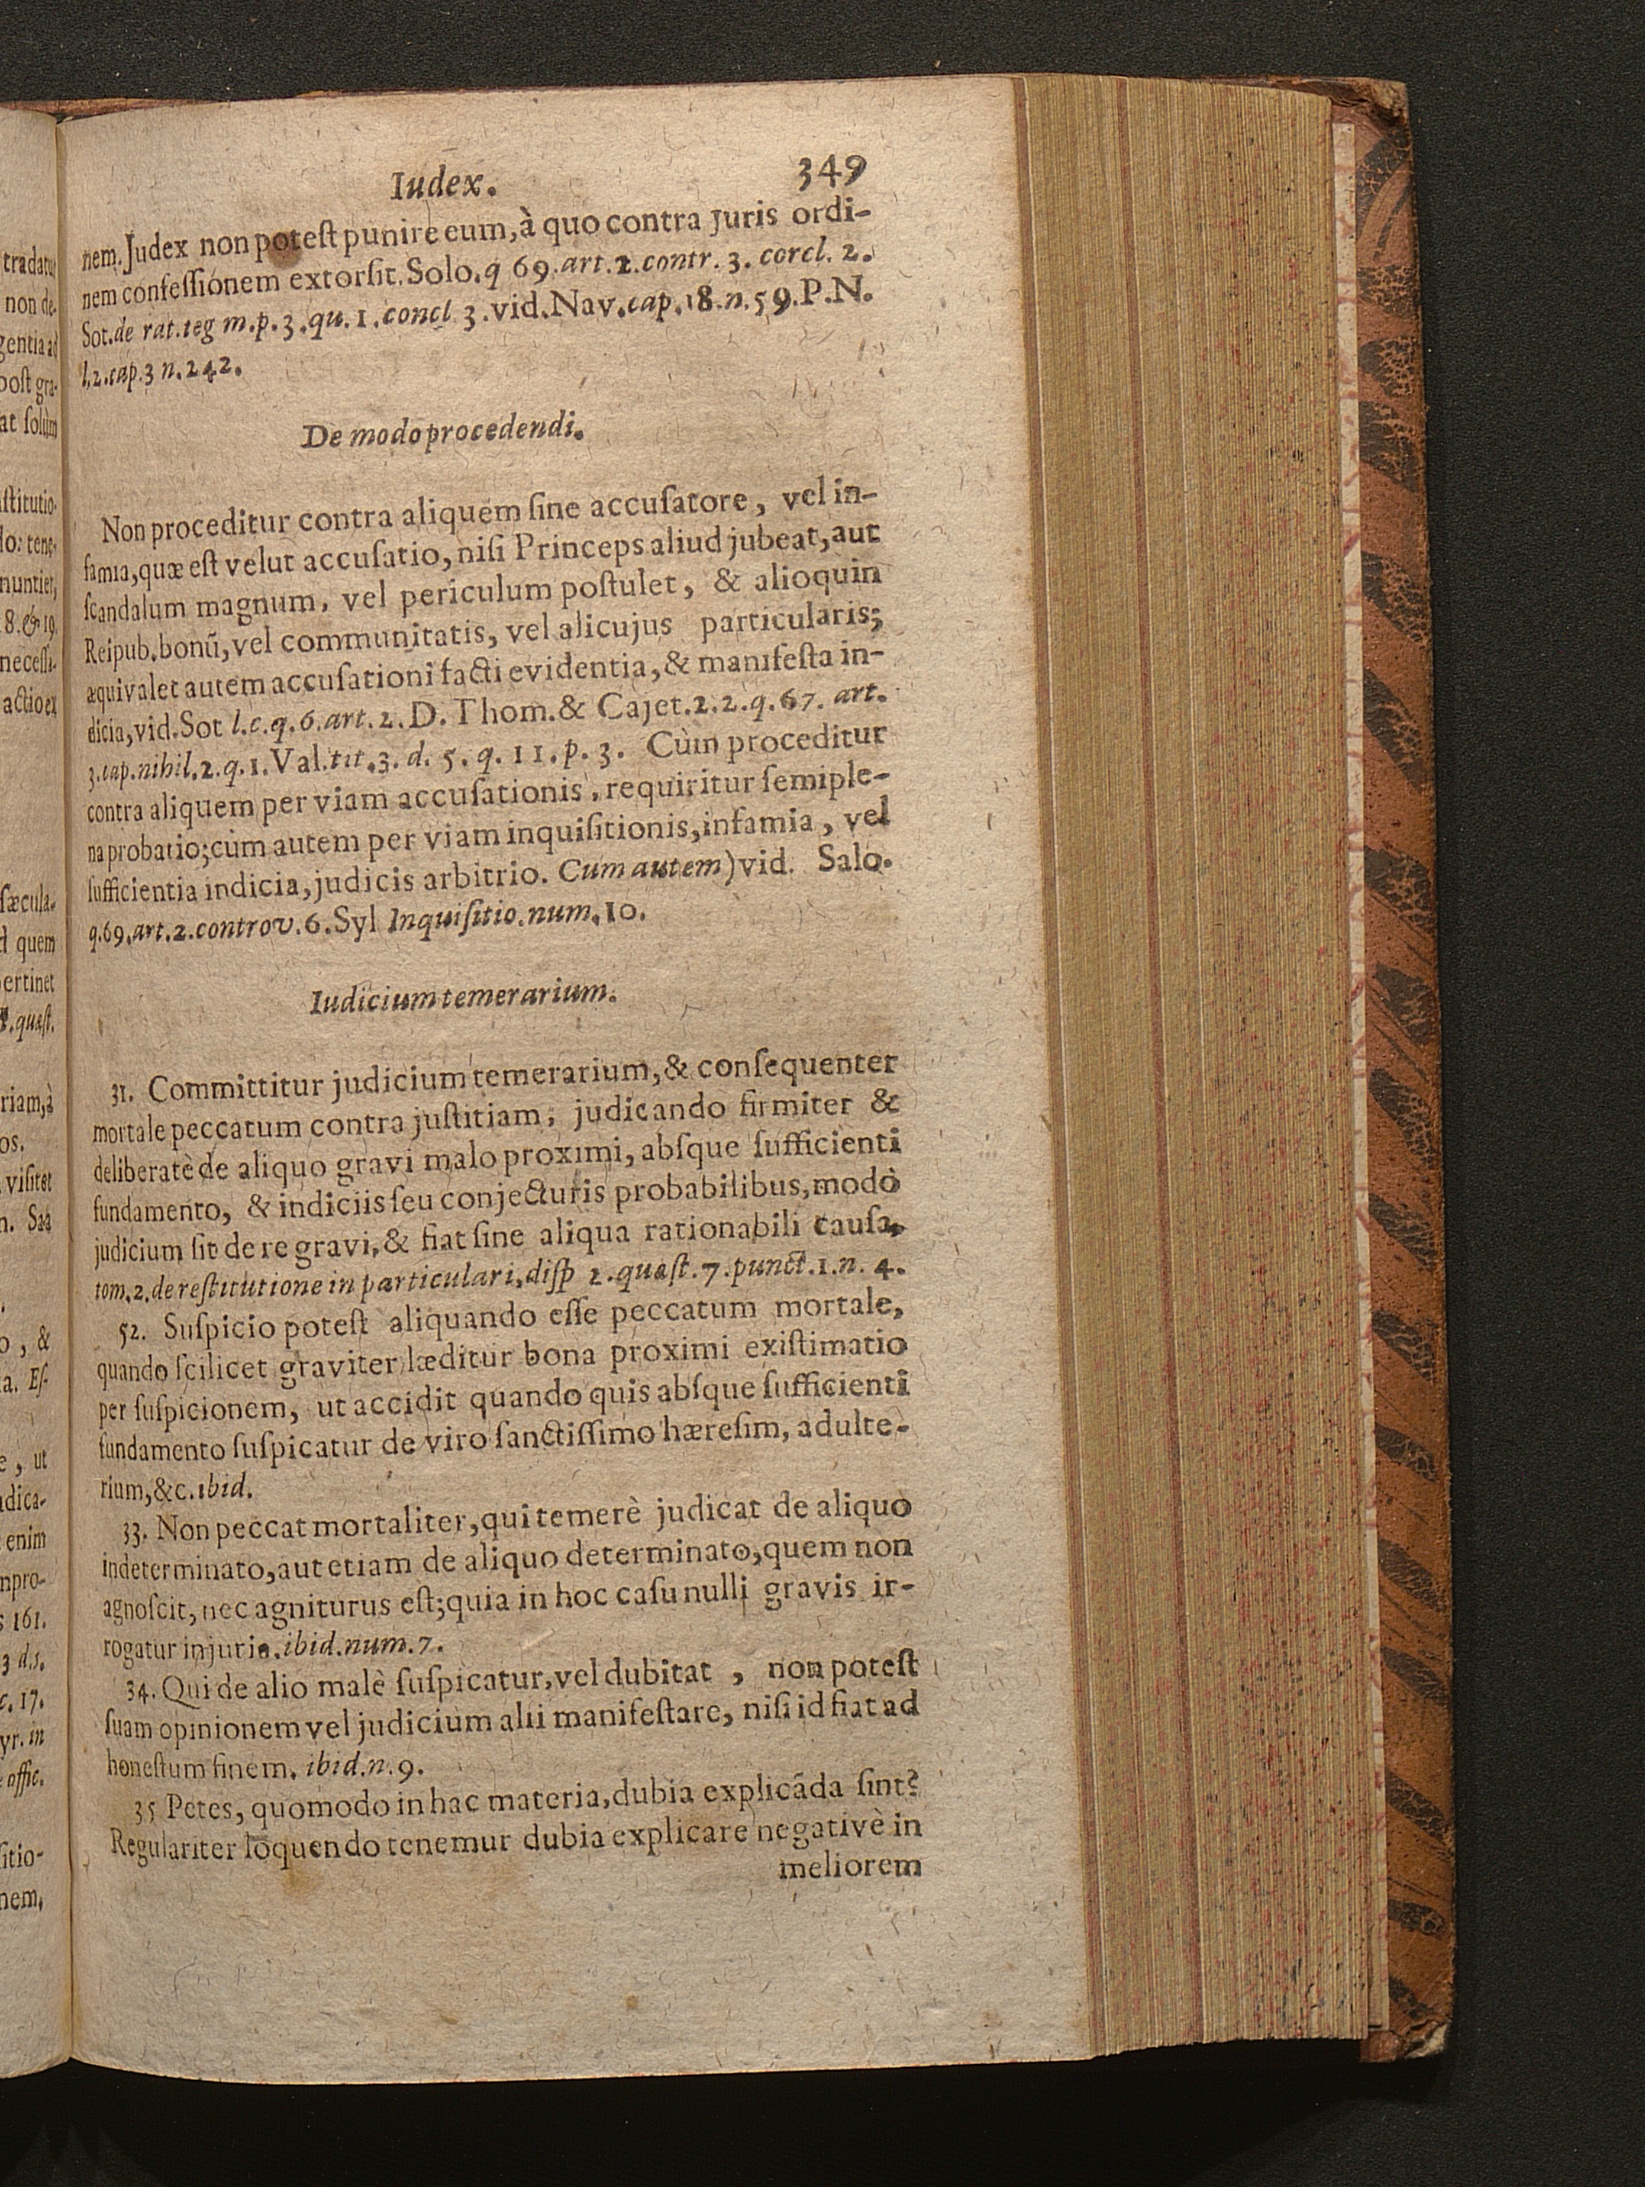 Iudex. 349
nem. Judex non poteſt punire eum, à quo contra juris ordi-
nem confeſſionem extorſit. Solo. q 69. art. 2. contr. 3. corcl. 2.
Sot. de rat. teg m. p. 3. qu. 1. concl 3. vid. Nav. cap. 18. n. 59. P. N.
l. 2. cap. 3 n. 242.
De modo procedendi.
Non proceditur contra aliquem ſine accuſatore, vel in-
famia, quæ eſt velut accuſatio, niſi Princeps aliud jubeat, aut
ſcandalum magnum, vel periculum poſtulet, & alioquin
Reipub. bonũ, vel communitatis, vel alicujus particularis;
æquivalet autem accuſationi facti evidentia, & manifeſta in-
dicia, vid. Sot l. c. q. 6. art. 2. D. Thom. & Cajet. 2. 2. q. 67. art.
3. cap. nihil. 2. q. 1. Val. tit. 3. d. 5. q. 11. p. 3. Cùm proceditur
contra aliquem per viam accuſationis, requiritur ſemiple-
na probatio; cùm autem per viam inquiſitionis, infamia, vel
ſufficientia indicia, judicis arbitrio. Cum autem) vid. Salo.
q. 69. art. 2. controv. 6. Syl Inquiſitio. num. 10.
Iudicium temerarium.
31. Committitur judicium temerarium, & conſequenter
mortale peccatum contra juſtitiam, judicando firmiter &
deliberatè de aliquo gravi malo proximi, abſque ſufficienti
fundamento, & indiciis ſeu conjecturis probabilibus, modò
judicium ſit de re gravi, & fiat ſine aliqua rationabili cauſa,
tom. 2. de reſtitutione in particulari, diſp 2. quæſt. 7. punct. 1. n. 4.
52. Suſpicio poteſt aliquando eſſe peccatum mortale,
quando ſcilicet graviter læditur bona proximi exiſtimatio
per ſuſpicionem, ut accidit quando quis abſque ſufficienti
fundamento ſuſpicatur de viro ſanctiſſimo hæreſim, adulte-
rium, &c. ibid.
33. Non peccat mortaliter, qui temerè judicat de aliquo
indeterminato, aut etiam de aliquo determinato, quem non
agnoſcit, nec agniturus eſt; quia in hoc caſu nulli gravis ir-
rogatur injuria. ibid. num. 7.
34. Qui de alio malè ſuſpicatur, vel dubitat, non poteſt
ſuam opinionem vel judicium alii manifeſtare, niſi id fiat ad
honeſtum finem. ibid. n. 9.
35 Petes, quomodo in hac materia, dubia explicãda ſint?
Regulariter loquendo tenemur dubia explicare negativè in
meliorem